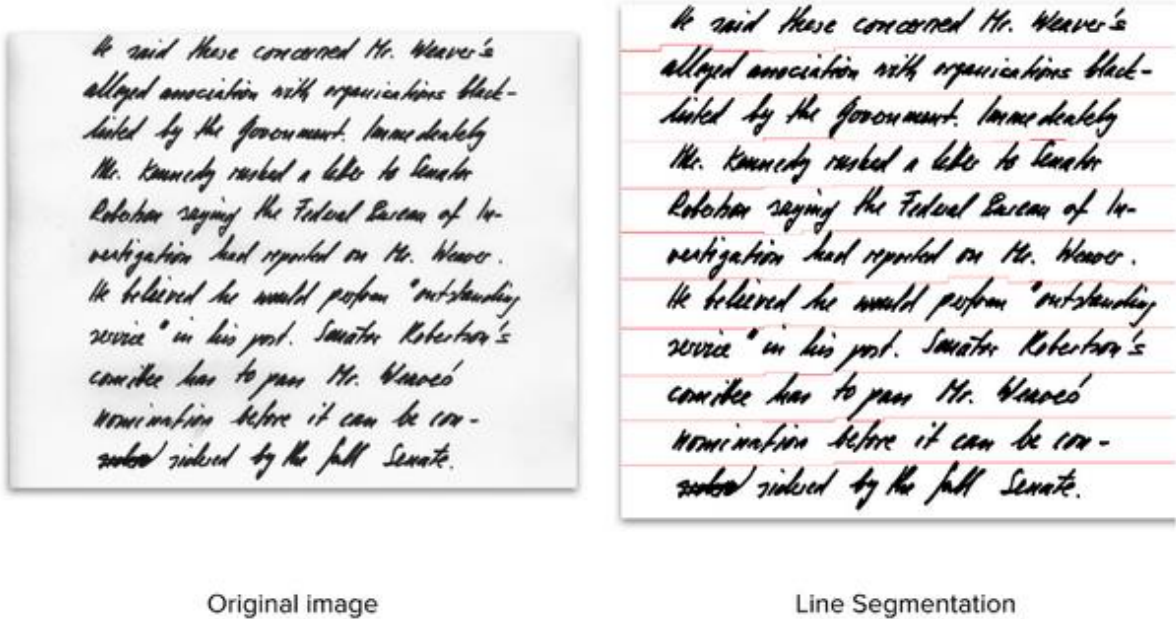 He said these concerned Mr. Weaver's
alleged association with organisations black-
listed by the Government. Immedeately
Mr. Kennedy rushed a letter to Senator
Robertson saying the Federal Bureau of In-
vestigation had reported on Mr. Weaver.
He believed he would perform "outstanding
service" in his post. Senator Robertson's
comittee has to pass Mr. Weaver's
nomination before it can be con-
sidered by the full Senate.
Original image
He said these concerned Mr. Weaver's
alleged association with organisations black-
listed by the Government. Immedeately
Mr. Kennedy rushed a letter to Senator
Robertson saying the Federal Bureau of In-
vestigation had reported on Mr. Weaver.
He believed he would perform "outstanding
service" in his post. Senator Robertson's
comittee has to pass Mr. Weaver's
nomination before it can be con-
sidered by the full Senate.
Line Segmentation